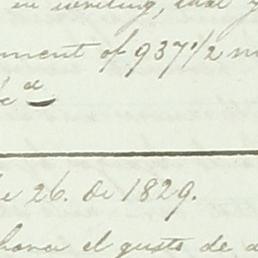 in writing, that
ment of 937 1/2 m
&c.ª
e 26. de 1829.
honor el gusto de a